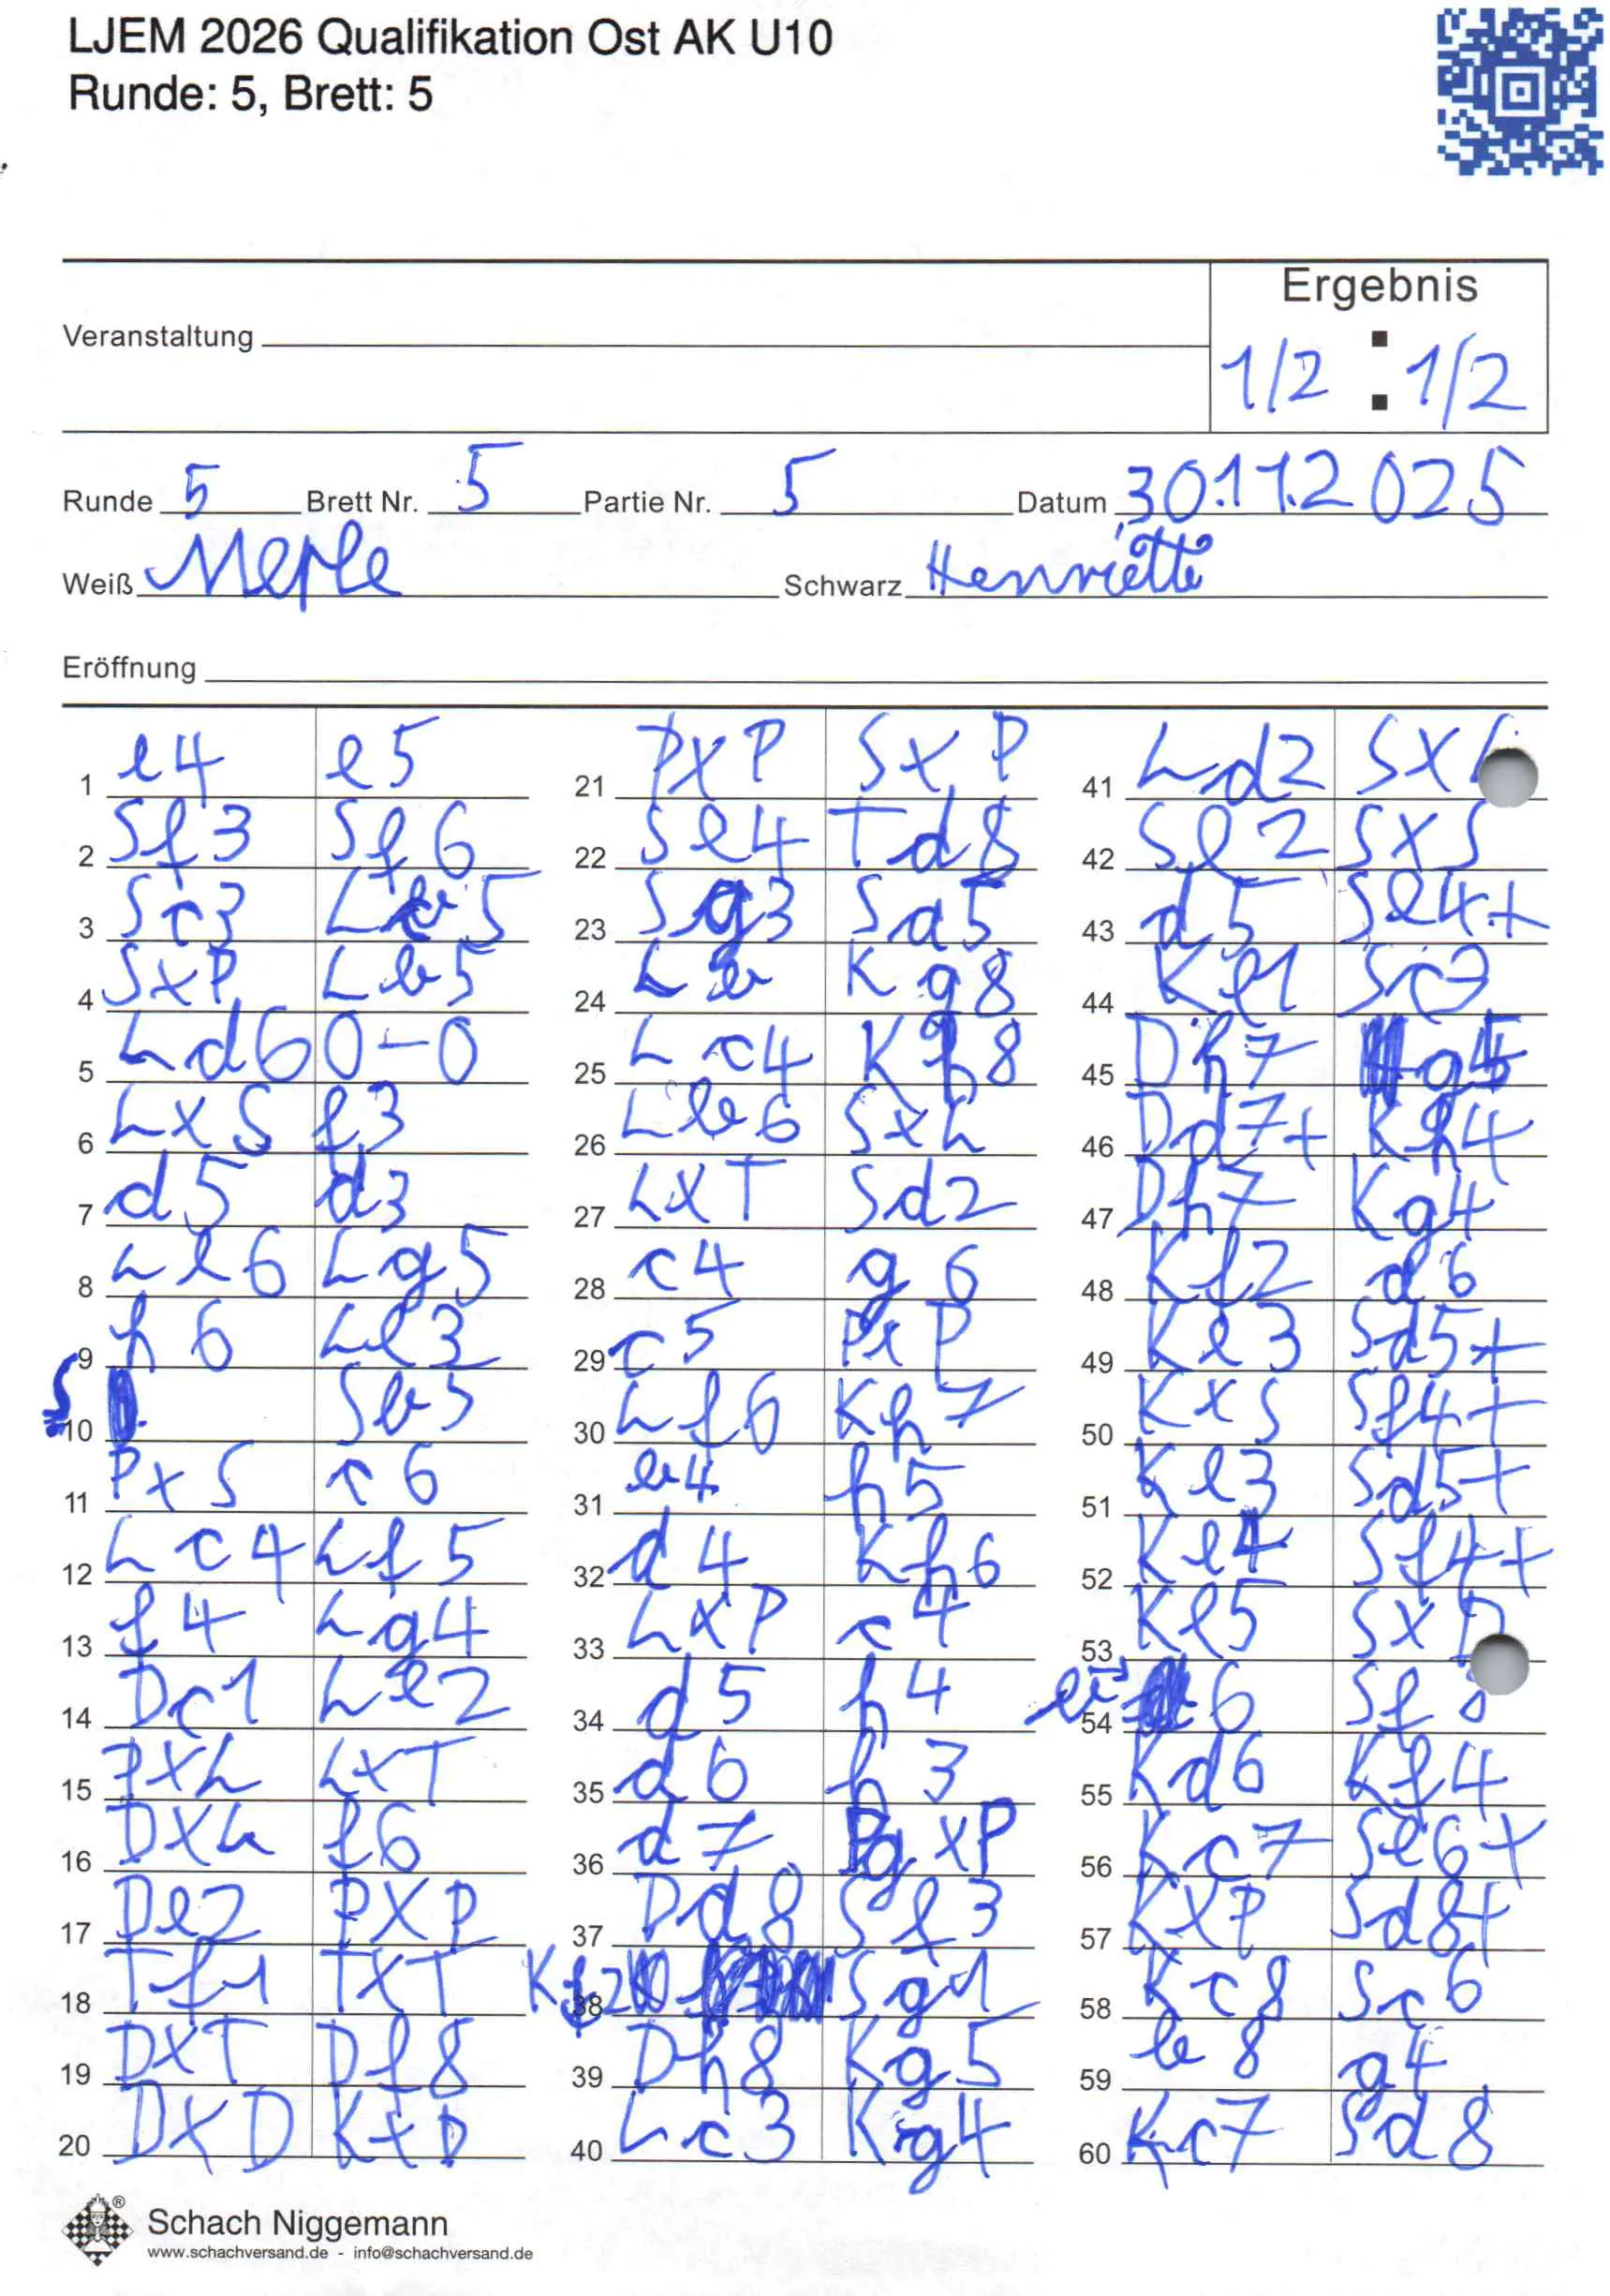 LJEM 2026 Qualifikation Ost AK U10
Runde: 5, Brett: 5
Ergebnis
Veranstaltung
1/2 : 1/2
Runde 5 Brett Nr. 5 Partie Nr. 5 Datum 30.11.2025
Weiß Merle Schwarz Henriette
Eröffnung
1 e4 e5
2 Sf3 Sf6
3 Sc3 L 5
4 SxP Lb5
5 Ld6 0-0
6 LxS f3
7 d5 d3
8 Le6 Lg5
9 h6 Le3
10 S Sb5
11 PxS c6
12 Lc4 Lf5
13 f4 Lg4
14 Dc1 Le2
15 PxL LxT
16 DxL f6
17 De2 PxP
18 Tf1 TxT
19 DxT Df8
20 DxD KxD
21 PxP SxP
22 Se4 Td8
23 Sg3 Sd5
24 Lb Kg8
25 Lc4 Kh8
26 Lb6 SxL
27 LxT Sd2
28 c4 g6
29 c5 PxP
30 Lf6 Kh7
31 b4 h5
32 d4 Kh6
33 LxP c4
34 d5 h4
35 d6 h3
36 d7 PgxP
37 Dd8 Sf3
38 Kf2 Sg1
39 Dh8 Kg5
40 Lc3 Kg4
41 Ld2 SxL
42 Se2 SxS
43 d5 Se4+
44 Ke1 Sc3
45 Dh7 g5
46 Dd7+ Kh4
47 Dh7 Kg4
48 Kf2 d6
49 Ke3 Sd5+
50 KxS Sf4+
51 Ke3 Sd5+
52 Ke4 Sf4+
53 Ke5 SxD
54 6 Sf8
55 Kd6 Kf4
56 Kc7 Se6+
57 KxP Sd8+
58 Kc8 Sc6
59 b8 g4
60 Kc7 Sd8
Schach Niggemann
www.schachversand.de - info@schachversand.de